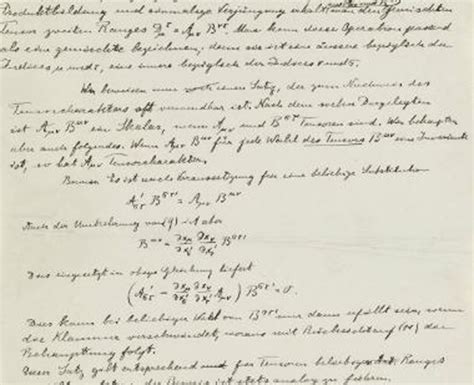 Produktbildung und einmalige Verjüngung erhält man den gemischten
Tensor zweiten Ranges D = A_{μν} B^{στ}. Man kann diese Operation passend
als eine gemischte bezeichnen; denn sie ist eine äussere bezüglich der
Indices μ und τ, eine innere bezüglich der Indices ν und σ.
Wir beweisen nun noch einen Satz, der zum Nachweis des
Tensorcharakters oft verwendbar ist. Nach dem soeben Dargelegten
ist A_{μν} B^{μν} ein Skalar, wenn A_{μν} und B^{στ} Tensoren sind. Wir behaupten
aber auch folgendes. Wenn A_{μν} B^{μν} für jede Wahl des Tensors B^{μν} eine Invariante
ist, so hat A_{μν} Tensorcharakter.
Beweis. Es ist nach Voraussetzung für eine beliebige Substitution
A'_{στ} B^{στ'} = A_{μν} B^{μν}
Nach der Umkehrung von (9) ist aber
B^{μν} = ∂x_μ/∂x'_σ ∂x_ν/∂x'_τ B^{στ'}
Dies eingesetzt in obige Gleichung liefert
(A'_{στ} − ∂x_μ/∂x'_σ ∂x_ν/∂x'_τ A_{μν}) B^{στ'} = 0.
Dies kann bei beliebiger Wahl von B^{στ'} nur dann erfüllt sein, wenn
die Klammer verschwindet, woraus mit Rücksicht auf (11) die
Behauptung folgt.
Dieser Satz gilt entsprechend für Tensoren beliebigen Ranges
der Beweis ist stets analog zu führen.